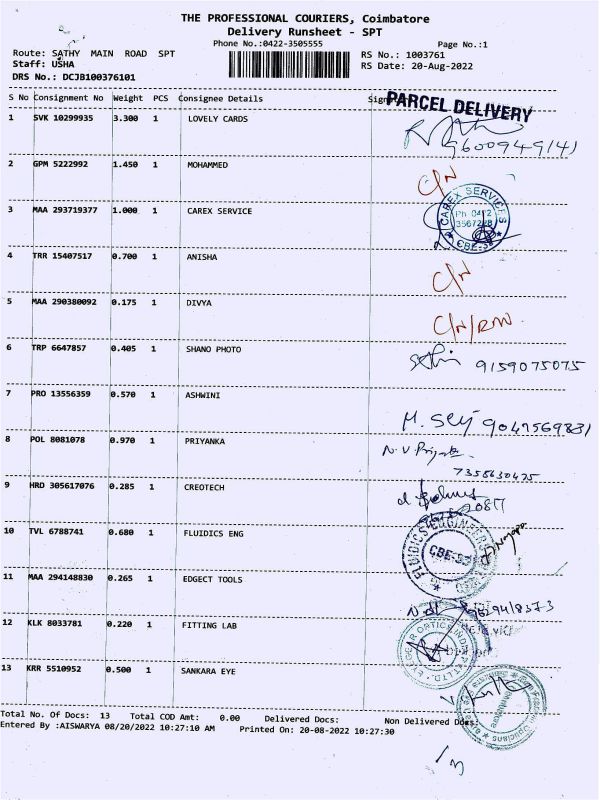 THE PROFESSIONAL COURIERS, Coimbatore
Delivery Runsheet - SPT
Phone No.:0422-3505555 Page No.:1
Route: SATHY MAIN ROAD SPT RS No.: 1003761
Staff: USHA RS Date: 20-Aug-2022
DRS No.: DCJB100376101
S No Consignment No Weight PCS Consignee Details
PARCEL DELIVERY
1 SVK 10299935 3.300 1 LOVELY CARDS
9600949141
2 GPM 5222992 1.450 1 MOHAMMED C/N
3 MAA 293719377 1.000 1 CAREX SERVICE
CAREX SERVICES
Ph 0422
CBE-
4 TRR 15407517 0.700 1 ANISHA C/N
5 MAA 290380092 0.175 1 DIVYA C/N/
6 TRP 6647857 0.405 1 SHANO PHOTO 9159075075
7 PRO 13556359 0.570 1 ASHWINI
8 POL 8081078 0.970 1 PRIYANKA
7358630475
9 HRD 305617076 0.285 1 CREOTECH
10 TVL 6788741 0.680 1 FLUIDICS ENG
FLUIDICS
CBE-
11 MAA 294148830 0.265 1 EDGECT TOOLS
12 KLK 8033781 0.220 1 FITTING LAB
13 KRR 5510952 0.500 1 SANKARA EYE
Total No. Of Docs: 13 Total COD Amt: 0.00 Delivered Docs: Non Delivered Docs:
Entered By :AISWARYA 08/20/2022 10:27:10 AM Printed On: 20-08-2022 10:27:30